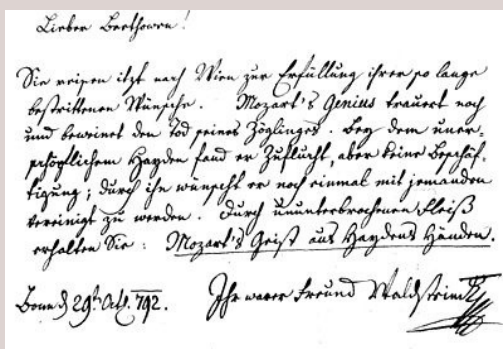 Lieber Beethowen!
Sie reisen itzt nach Wien zur Erfüllung ihrer so lange
bestrittenen Wünsche. Mozart's Genius trauert noch
und beweinet den Tod seines Zöglinges. Bey dem uner-
schöpflichem Hayden fand er Zuflucht, aber keine Beschäf-
tigung; durch ihn wünscht er noch einmal mit jemanden
vereinigt zu werden. Durch ununterbrochenen Fleiß
erhalten Sie: Mozart's Geist aus Haydens Händen.
Bonn d 29t. Oct. 792. Ihr warer Freund Waldstein